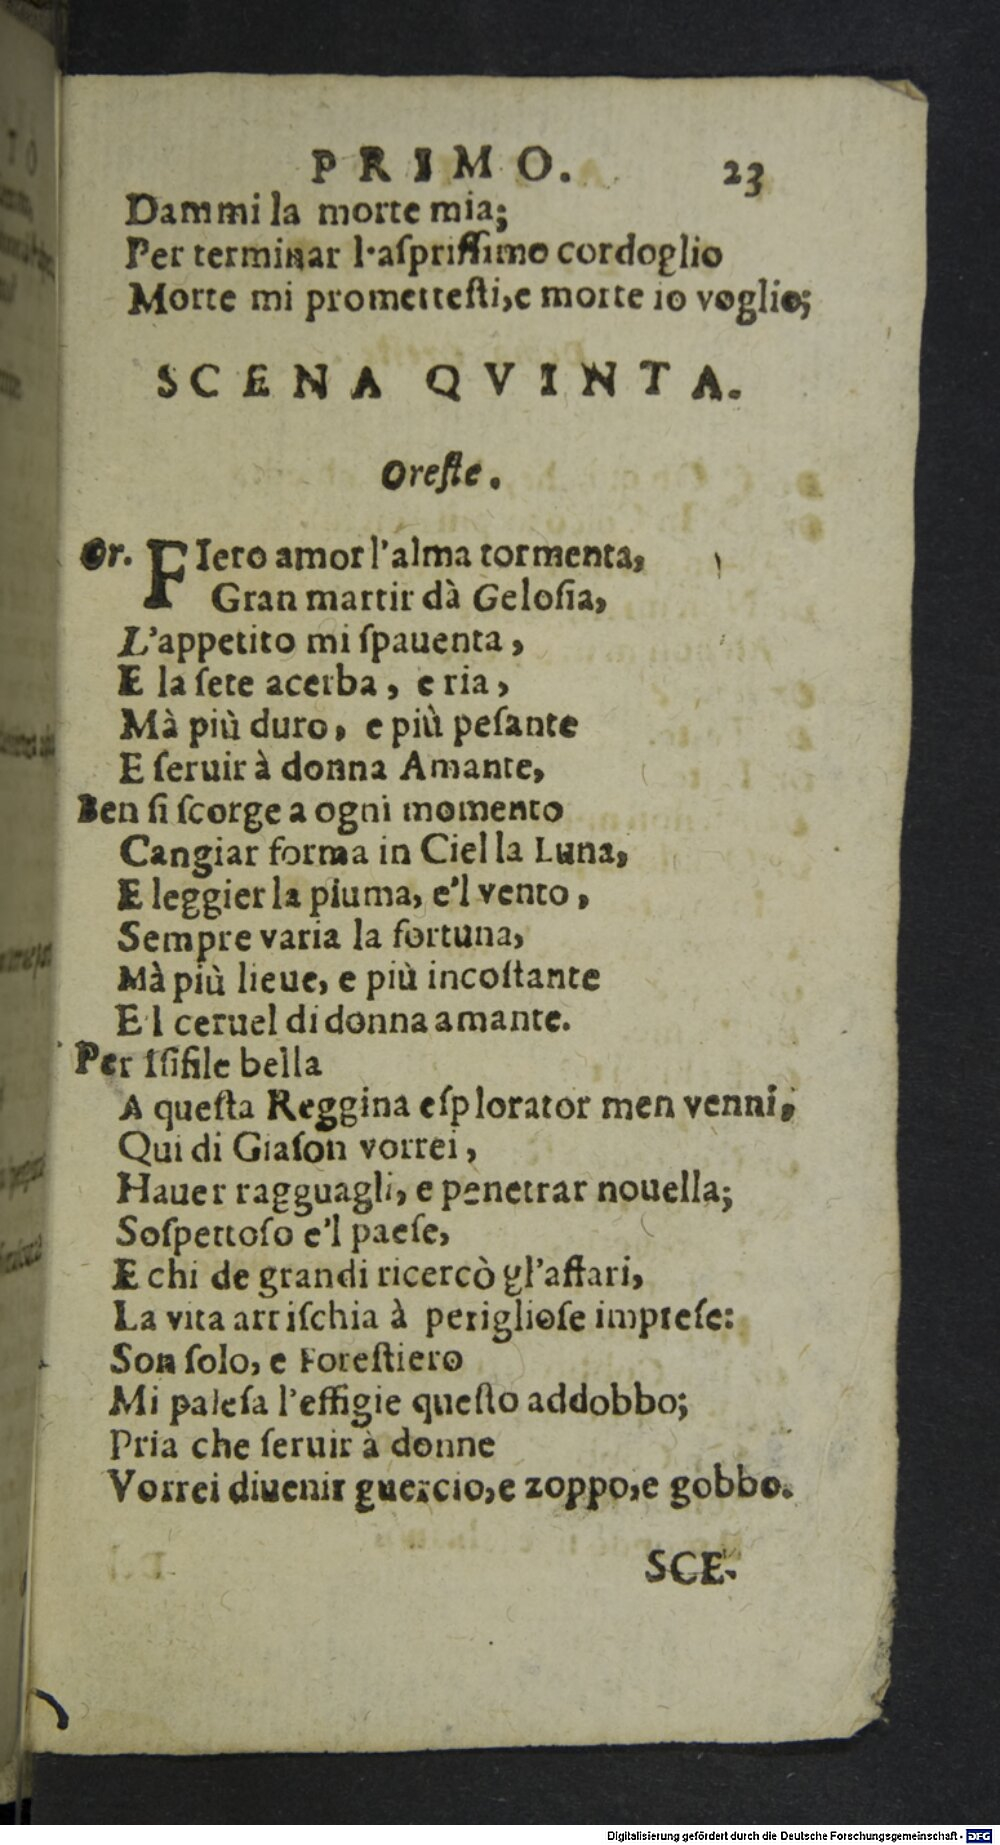 PRIMO. 23
Dammi la morte mia;
Per terminar l'aſpriſſimo cordoglio
Morte mi prometteſti,e morte io voglio;
SCENA QVINTA.
Oreſte.
Or. FIero amor l'alma tormenta,
Gran martir dà Geloſia,
L'appetito mi ſpauenta,
E la ſete acerba, e ria,
Mà più duro, e più peſante
E ſeruir à donna Amante,
Ben ſi ſcorge a ogni momento
Cangiar forma in Ciel la Luna,
E leggier la piuma, e'l vento,
Sempre varia la fortuna,
Mà più lieue, e più incoſtante
E l ceruel di donna amante.
Per Iſifile bella
A queſta Reggina eſplorator men venni,
Qui di Giaſon vorrei,
Hauer ragguagli, e penetrar nouella;
Soſpettoſo e'l paeſe,
E chi de grandi ricercò gl'affari,
La vita arriſchia à periglioſe impreſe:
Son ſolo, e Foreſtiero
Mi paleſa l'effigie queſto addobbo;
Pria che ſeruir à donne
Vorrei diuenir guercio,e zoppo,e gobbo.
SCE-
Digitalisierung gefördert durch die Deutsche Forschungsgemeinschaft - DFG